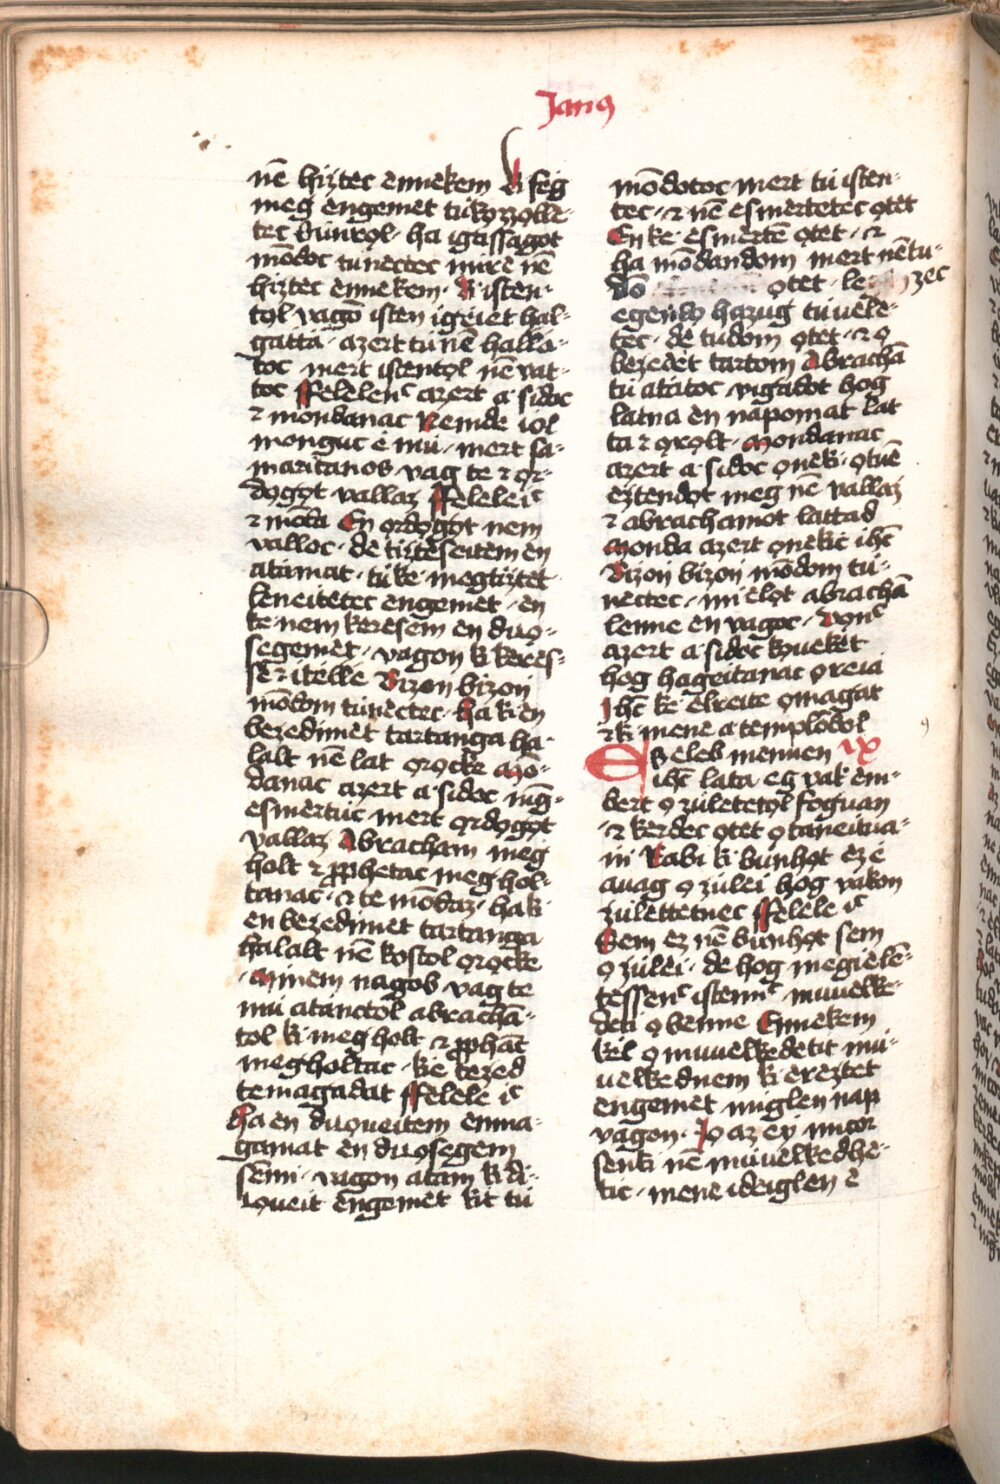 Janꝯ
nē hiztec ennekem Ki feġ
meg engemèt tukozzolle-
tec bunrọl · ha igassagot
mōdoc tunectec mire nē
hiztec ennekem · Ki isten-
tọl vagō isten igeiet hal-
gatta · azert tu nē halla-
toc · mert istentọl nē vat-
toc Felelenc azert a sidoc
⁊ mondanac Nemde iol
monguc e mu · mert sa-
maritanos vag te ⁊ ọr-
dọgọt vallaz Felele ic
⁊ mōda En ọrdọgọt nem
valloc · de tiztèseitem en
atamat · tu ke megtiztèt
lèneitètec engemèt · en
ke nem keresem en duọ-
segemèt · vagon ki keres-
se ⁊ itelle Bizon bizon
mōdom tunèctec · Ha ki en
bezedimèt tartanga ha-
lalt nē lat ọrọcke Mō-
danac azert a sidoc mġ-
esmèrtuc mert ọrdọgọt
vallaz Abracham meg
holt ⁊ ꝓphetac meghol-
tanac · ⁊ te mōdaz · ha ki
en bezedimèt tartanga
halalt nē kostol ọrọcke
· Minem nagob vag te
mu atanctol abrachā-
tol ki meg holt ⁊ ꝓphac
megholtac · ke tezed
temagadat Felele ic
Ha en duọueitem enma-
gamat en duọsegem
semi · vagon atam ki di-
ọueit engemèt kit tu
mōdotoc mert tu isten-
tec · ⁊ nē esmertètec ọtèt
En ke esmertē ọtèt · ⁊
ha mōdandom mert nē tu-
dō ọtèt · le zec
egenlọ hazug tu vele-
tec · de tudom ọtèt · ⁊ ọ
bezedèt tartom Abrachā
tu atatoc vigadot hog
latna en napomat lat
ta ⁊ ọrọlt · Mondanac
azert a sidoc ọneki · ọtuē
eztendọt meg nē vallaz
⁊ abrachamot lattad
Monda azert ọnekic ihc
Bizon bizon mōdom tu-
nèctec · mielọt abrachā
lenne en vagoc · Vọnc
azert a sidoc kọuekèt
hog hageitanac ọreia
Ihc ke elreite ọmagat
⁊ ki mene a templōbol
Es eleb menuen IX
ihc lata eg vak em-
bert ọ zuletètọl foguan
· ⁊ kerdec ọtèt ọ taneitua-
ni Rabi ki bunhọt ez e
auag ọ zulei hog vakon
zulettetnec Felele ic
Sem ez nē bunhọt sem
ọ zulei · de hog megielē-
tessenc istennc muuelke-
deti ọ benne Ennekem
kel ọ muuelkedetit mu-
uelkednem ki ereztèt
engemèt miglen nap
vagon · Io az eÿ micor
senki nē muuelkedhe-
tic · mene ideiglen e